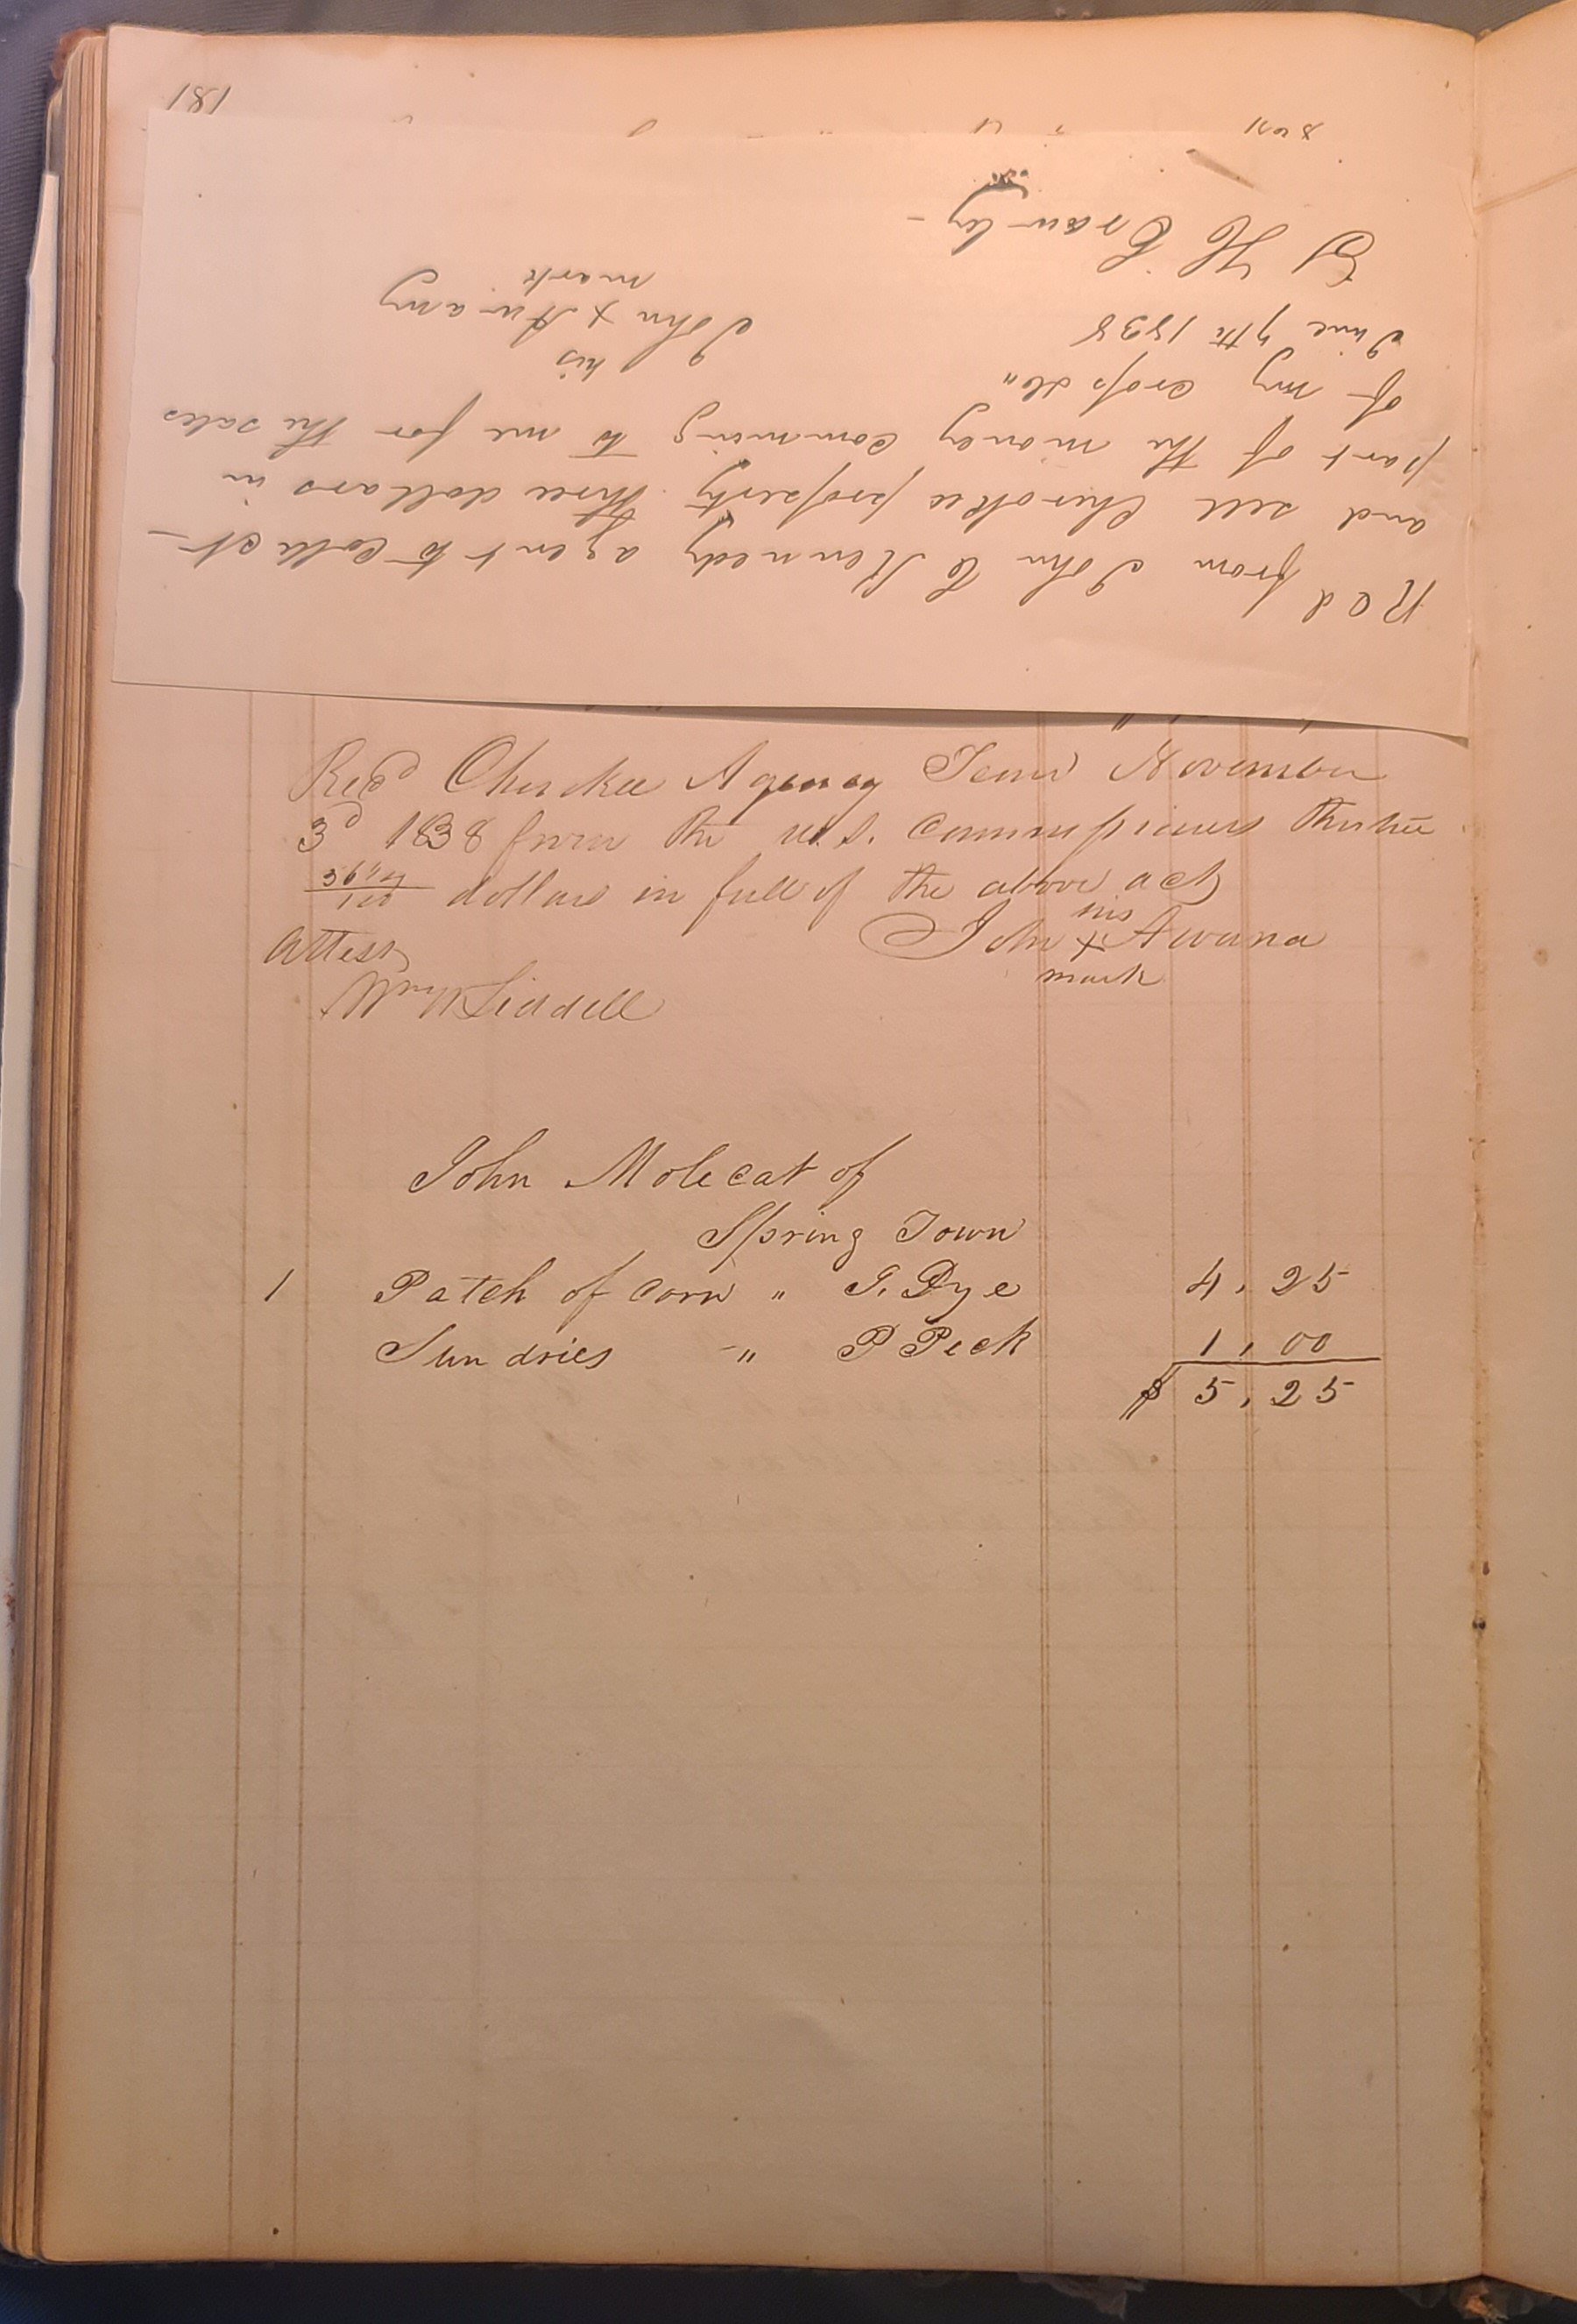 181
Recd from John C Kennedy agent to Collect
and sell Cherokee property three dollars in
part of the money comming to me for the sales
of my crops &c
June 7th 1838
his
John x Awany
mark
E H Crawley
Recd Cherokee Agency Tenn November
3d 1838 from the U.S. Commissioners
dollars in full of the above act
his
Attest John x Awana
mark
Wm W Liddell
John Molecat of
Spring Town
1 Patch of corn " T. Dye 4.25
Sundries " P Peck 1.00
$ 5.25